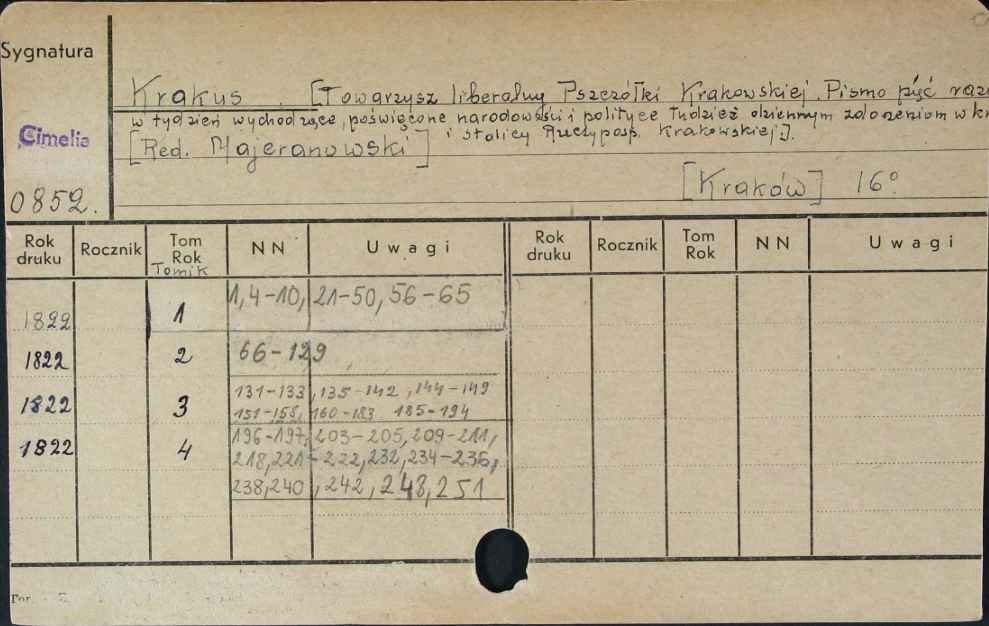 Sygnatura
Cimelia
0852.
Krakus . [Towarzysz liberalny Pszczółki Krakowskiej. Pismo pięć razy
w tydzień wychodzące, poświęcone narodowości i polityce tudzież dziennym zdarzeniom w
i stolicy Rzczyposp. Krakowskiej].
[Red. Majeranowski]
[Kraków] 16°
Rok druku Rocznik Tom Rok Tomik NN Uwagi Rok druku Rocznik Tom Rok NN Uwagi
1822 1 1, 4-10, 21-50, 56-65
1822 2 66-129
1822 3 131-133, 135-142, 144-149
151-158, 160-183 185-194
1822 4 196-197, 203-205, 209-211,
218, 221-222, 232, 234-236,
238, 240, 242, 248, 251